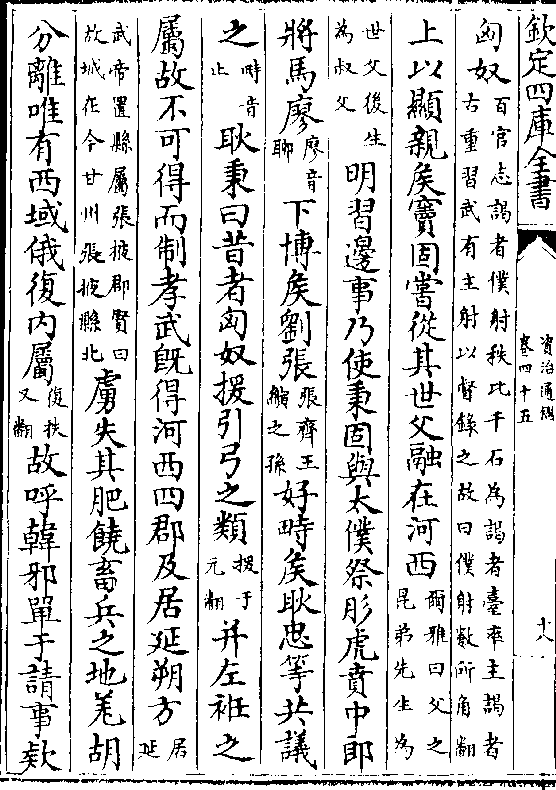 欽定四庫全書
資治通鑑
卷四十五
十八
匈奴
百官志謁者僕射秩比千石為謁者臺率主謁者
古重習武有主射以督錄之故曰僕射數所角翻
上以顯親矦竇固嘗從其世父融在河西
爾雅曰父之
昆弟先生為
世父後生
為叔父
明習邊事乃使秉固與太僕祭肜虎賁中郎
將馬廖
廖音
聊
下博矦劉張
張齊王
縯之孫
好畤矦耿忠等共議
之
畤音
止
耿秉曰昔者匈奴援引弓之類
援于
元翻
并左衽之
屬故不可得而制孝武旣得河西四郡及居延朔方
居
延
武帝置縣屬張掖郡賢曰
故城在今甘州張掖縣北
虜失其肥饒畜兵之地羌胡
分離唯有西域俄復内屬
復扶
又翻
故呼韓邪單于請事欵